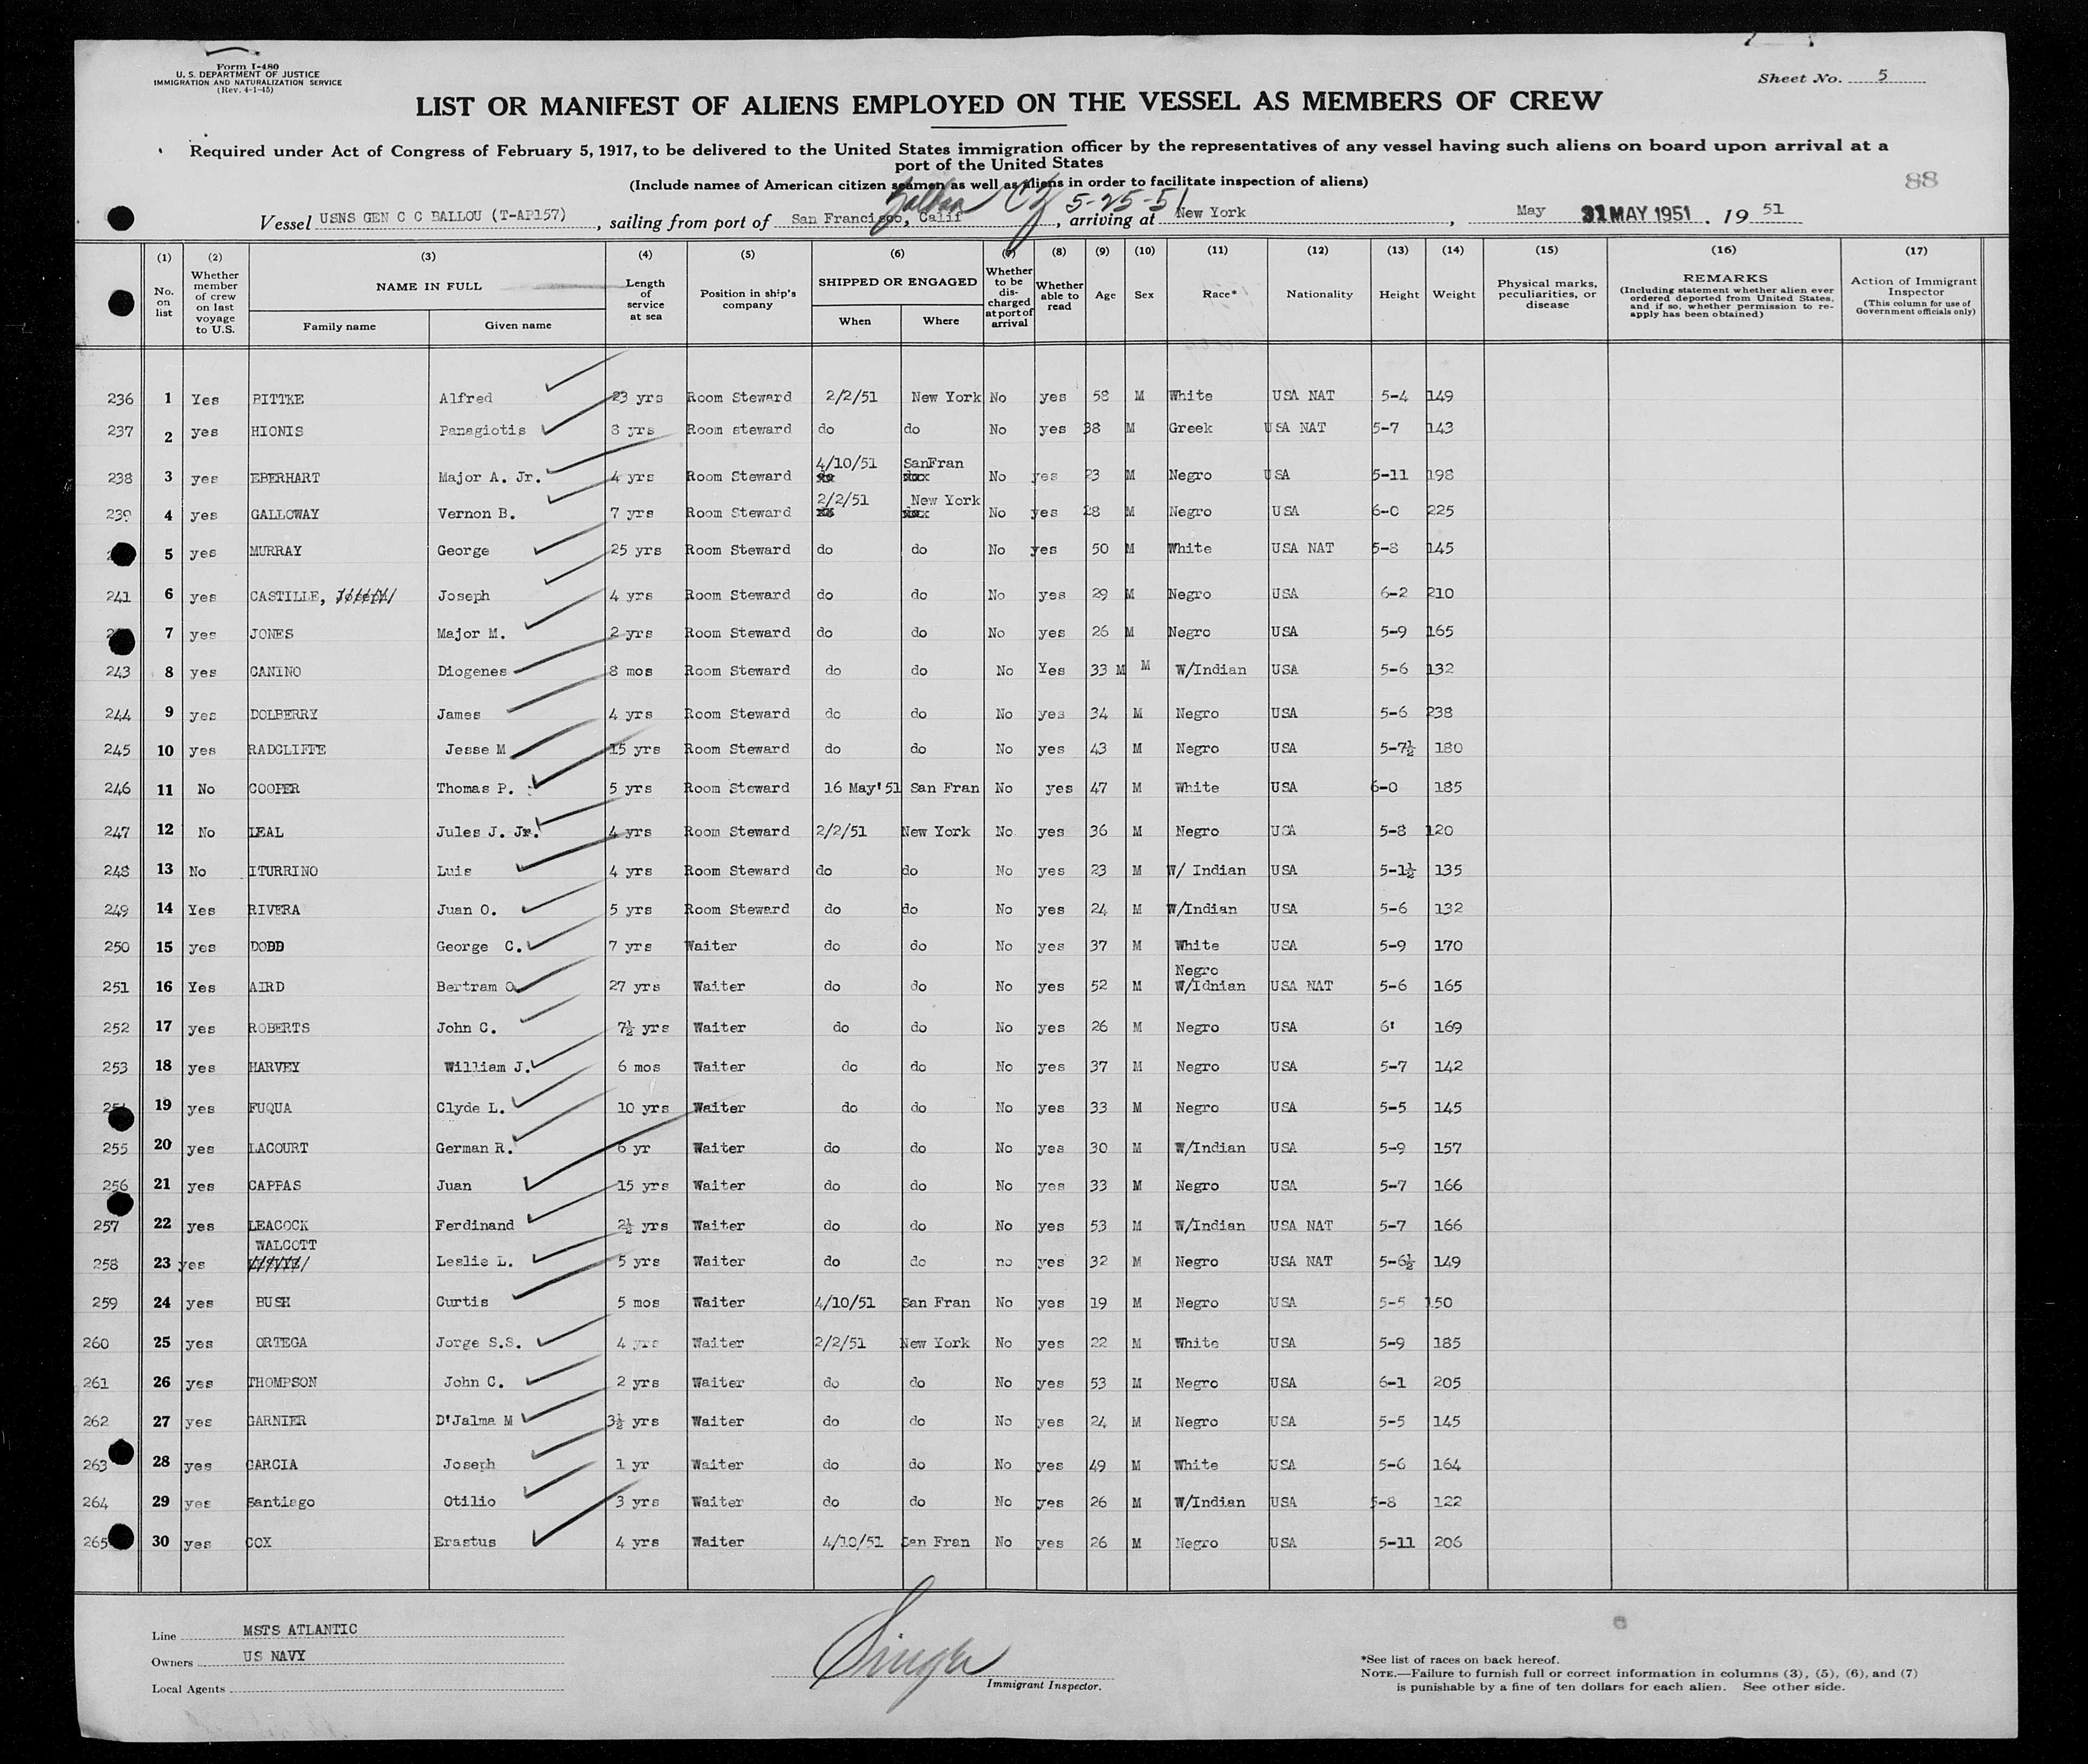 Form I-480
U. S. DEPARTMENT OF JUSTICE
IMMIGRATION AND NATURALIZATION SERVICE
(Rev. 4-1-45)
Sheet No. 5
LIST OR MANIFEST OF ALIENS EMPLOYED ON THE VESSEL AS MEMBERS OF CREW
Required under Act of Congress of February 5, 1917, to be delivered to the United States immigration officer by the representatives of any vessel having such aliens on board upon arrival at a
port of the United States
(Include names of American citizen seamen as well as aliens in order to facilitate inspection of aliens)
88
Balboa CZ 5-25-51
Vessel USNS GEN C C BALLOU (T-AP157), sailing from port of San Francisco, Calif, arriving at New York, May 31 MAY 1951. 19 51
(1) (2) (3) (4) (5) (6) (7) (8) (9) (10) (11) (12) (13) (14) (15) (16) (17)
No. on list
Whether member of crew on last voyage to U.S.
NAME IN FULL
Family name
Given name
Length of service at sea
Position in ship's company
SHIPPED OR ENGAGED
When
Where
Whether to be discharged at port of arrival
Whether able to read
Age
Sex
Race*
Nationality
Height
Weight
Physical marks, peculiarities, or disease
REMARKS
(Including statement whether alien ever ordered deported from United States, and if so, whether permission to re-apply has been obtained)
Action of Immigrant Inspector
(This column for use of Government officials only)
236 1 Yes PITTKE Alfred 23 yrs Room Steward 2/2/51 New York No yes 58 M White USA NAT 5-4 149
237 2 yes HIONIS Panagiotis 8 yrs Room steward do do No yes 38 M Greek USA NAT 5-7 143
238 3 yes EBERHART Major A. Jr. 4 yrs Room Steward 4/10/51 SanFran No yes 23 M Negro USA 5-11 198
239 4 yes GALLOWAY Vernon B. 7 yrs Room Steward 2/2/51 New York No yes 28 M Negro USA 6-0 225
5 yes MURRAY George 25 yrs Room Steward do do No yes 50 M White USA NAT 5-8 145
241 6 yes CASTILLE, Joseph 4 yrs Room Steward do do No yes 29 M Negro USA 6-2 210
7 yes JONES Major M. 2 yrs Room Steward do do No yes 26 M Negro USA 5-9 165
243 8 yes CANINO Diogenes 8 mos Room Steward do do No Yes 33 M M W/Indian USA 5-6 132
244 9 yes DOLBERRY James 4 yrs Room Steward do do No yes 34 M Negro USA 5-6 238
245 10 yes RADCLIFFE Jesse M 15 yrs Room Steward do do No yes 43 M Negro USA 5-7½ 180
246 11 No COOPER Thomas P. 5 yrs Room Steward 16 May'51 San Fran No yes 47 M White USA 6-0 185
247 12 No LEAL Jules J. Jr. 4 yrs Room Steward 2/2/51 New York No yes 36 M Negro USA 5-8 120
248 13 No ITURRINO Luis 4 yrs Room Steward do do No yes 23 M W/ Indian USA 5-1½ 135
249 14 Yes RIVERA Juan O. 5 yrs Room Steward do do No yes 24 M W/Indian USA 5-6 132
250 15 yes DODD George C. 7 yrs Waiter do do No yes 37 M White USA 5-9 170
251 16 Yes AIRD Bertram O 27 yrs Waiter do do No yes 52 M Negro W/Idnian USA NAT 5-6 165
252 17 yes ROBERTS John C. 7½ yrs Waiter do do No yes 26 M Negro USA 6' 169
253 18 yes HARVEY William J. 6 mos Waiter do do No yes 37 M Negro USA 5-7 142
19 yes FUQUA Clyde L. 10 yrs Waiter do do No yes 33 M Negro USA 5-5 145
255 20 yes LACOURT German R. 6 yr Waiter do do No yes 30 M W/Indian USA 5-9 157
256 21 yes CAPPAS Juan 15 yrs Waiter do do No yes 33 M Negro USA 5-7 166
257 22 yes LEACOCK Ferdinand 2½ yrs Waiter do do No yes 53 M W/Indian USA NAT 5-7 166
258 23 yes WALCOTT Leslie L. 5 yrs Waiter do do no yes 32 M Negro USA NAT 5-6½ 149
259 24 yes BUSH Curtis 5 mos Waiter 4/10/51 San Fran No yes 19 M Negro USA 5-5 150
260 25 yes ORTEGA Jorge S.S. 4 yrs Waiter 2/2/51 New York No yes 22 M White USA 5-9 185
261 26 yes THOMPSON John C. 2 yrs Waiter do do No yes 53 M Negro USA 6-1 205
262 27 yes GARNIER D'Jalma M 3½ yrs Waiter do do No yes 24 M Negro USA 5-5 145
263 28 yes GARCIA Joseph 1 yr Waiter do do No yes 49 M White USA 5-6 164
264 29 yes Santiago Otilio 3 yrs Waiter do do No yes 26 M W/Indian USA 5-8 122
265 30 yes COX Erastus 4 yrs Waiter 4/10/51 San Fran No yes 26 M Negro USA 5-11 206
Line MSTS ATLANTIC
Owners US NAVY
Local Agents
Immigrant Inspector.
*See list of races on back hereof.
NOTE.—Failure to furnish full or correct information in columns (3), (5), (6), and (7)
is punishable by a fine of ten dollars for each alien. See other side.